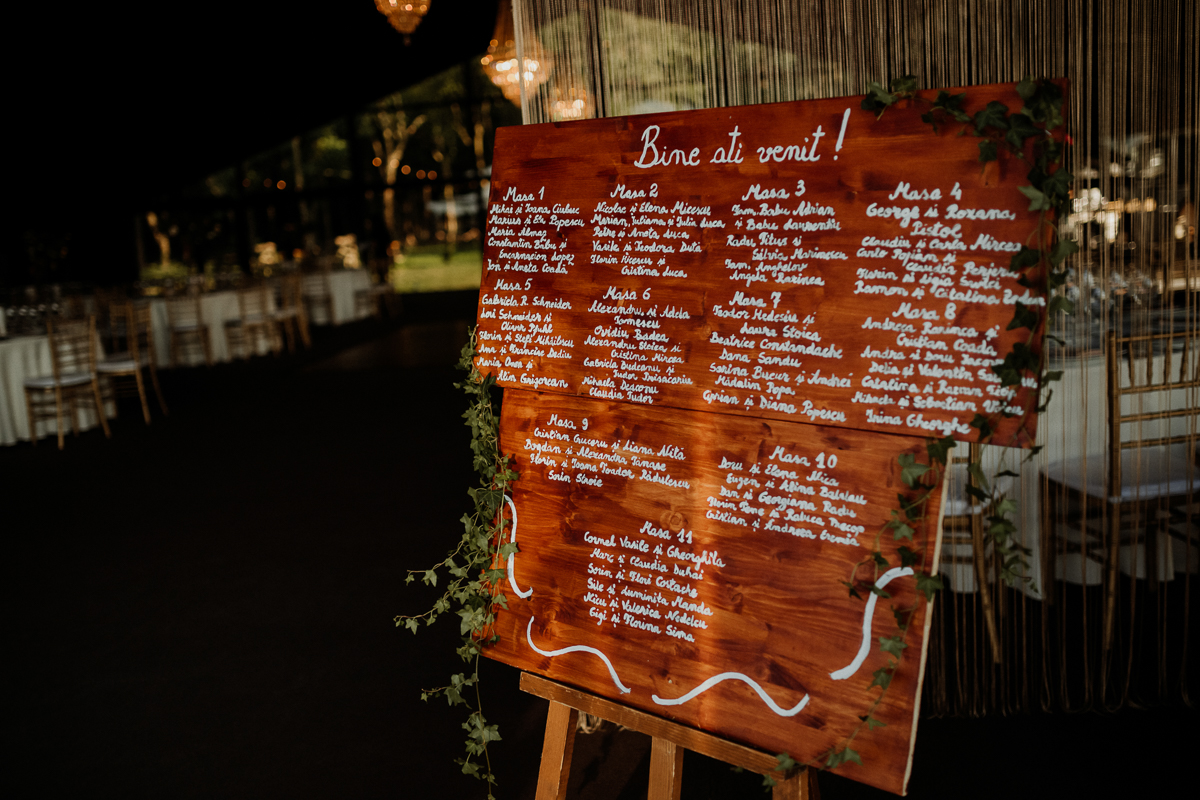 Bine ati venit!
Masa 1
Mihai și Ioana Ciubuc
Marius și Eu. Popescu
Maria Almaș
Constantin Babu și
Encarnacion Lopez
Ion și Aneta Coada
Masa 2
Nicolae și Elena Micescu
Marian, Iuliana și Iulia Luca
Petre și Aneta Luca
Vasile și Teodora Duță
Florin Vicescu și
Cristina Luca
Masa 3
Fam. Babu Adrian
și Babu Laurentiu
Radu Titus și
Silvia Marinescu
Fam. Anghelov
Angela Razinca
Masa 4
George și Roxana
Pistol
Claudiu și Carla Mircea
Carlo Popian și
Claudia
Florin și Ligia
Ramon și Catalina
Masa 5
Gabriela R. Schneider
Lori Schneider și
Oliver Pfuhl
Florin și Stefi Mihailescu
Ana și Francisc Dediu
Maria Onea și
Alin Grigorean
Masa 6
Alexandru și Adela
Tomescu
Ovidiu Badea
Alexandru Stoica și
Cristina Mircea
Gabriela Budeanu și
Tudor Trisacariu
Mihaela Deaconu
Claudia Tudor
Masa 7
Teodor Medesiu și
Laura Stoica
Beatrice Constandache
Dana Sandu
Sorina Bucur și Andrei
Mădalin Popa
Ciprian și Diana Popescu
Masa 8
Andreea Razinca și
Cristian Coada
Andra și Doru
Delia și Valentin
Catalina și Razvan
Mihaela și Sebastian
Irina Gheorghe
Masa 9
Cristian Guceru și Liana Niță
Bogdan și Alexandra Tanase
Florin și Ioana Toader Rădulescu
Sorin Stroie
Masa 10
Doru și Elena Mica
Eugen și Alina Batriau
Dan și Georgiana Radu
Florin Tene și Raluca Procop
Cristian și Andreea Eremia
Masa 11
Cornel Vasile și Gheorghița
Marc și Claudia Buhai
Sorin și Flori Costache
Sile și Luminita Manda
Nicu și Valerica Nedelcu
Gigi și Florina Sima